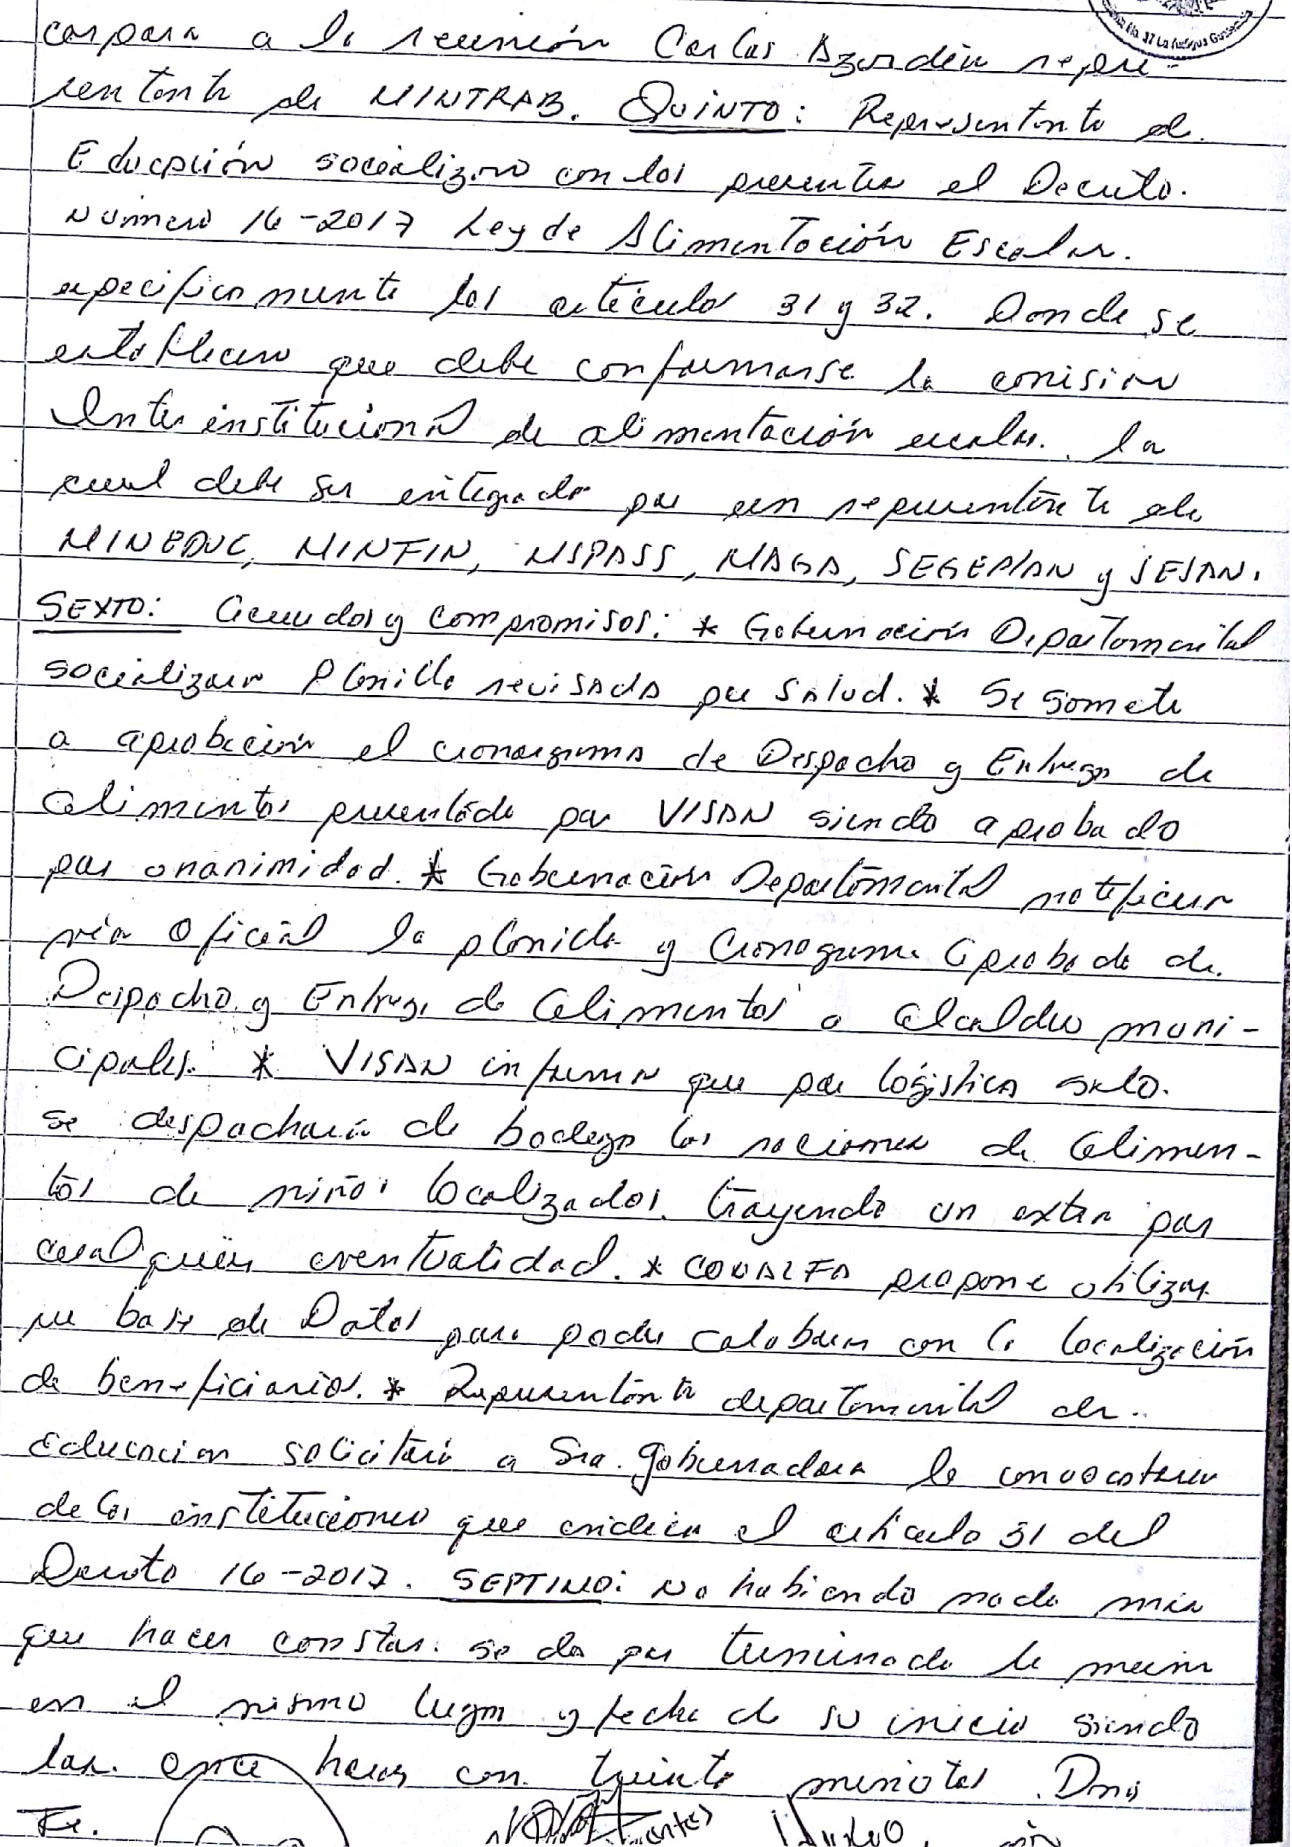 corpora a la reunión Carlos Azurdia repre-
sentante de MINTRAB. QUINTO: Representante de
Educación socializaron con los presentes el Decreto.
Número 16-2017 Ley de Alimentación Escolar.
especificamente los articulos 31 y 32. Donde se
establecen que debe conformarse la comision
Interinstitucional de alimentación escolar. la
cual debe ser integrada por un representante de
MINEDUC, MINFIN, MSPASS, MAGA, SEGEPLAN y SESAN.
SEXTO: Acuerdos y compromisos: * Gobernación Departamental
socializara Planilla revisada por Salud. * Se somete
a aprobación el cronograma de Despacho y Entrega de
Alimentos presentado por VISAN siendo aprobado
por unanimidad. * Gobernación Departamental notificara
vía oficial la planilla y Cronograma Aprobado de
Despacho y Entrega de Alimentos a Alcaldes muni-
cipales. * VISAN informa que por logística solo.
se despachará de bodega las raciones de Alimen-
tos de niños localizados. trayendo un extra por
cualquier eventualidad. * CONALFA propone utilizar
su base de Datos para poder colaborar con la localización
de beneficiarios. * Representante departamental de.
Educacion solicitará a Sra. Gobernadora la convocatoria
de las instituciones que indica el articulo 31 del
Decreto 16-2017. SEPTIMO: No habiendo nada más
que hacer constar. se da por terminada la
en el mismo lugar y fecha de su inicio siendo
las. once horas con treinta minutos. Doy
Fe.